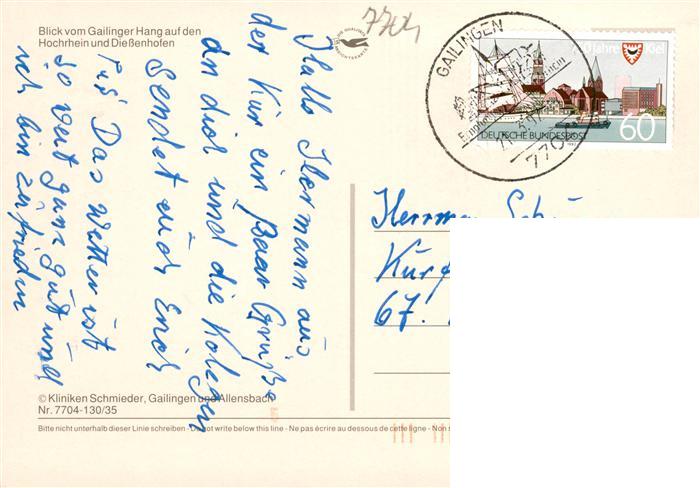 Blick vom Gailinger Hang auf den
Hochrhein und Dießenhofen
7704
Hallo Hermann aus
der Kur ein Paar Grüße
an dich und die Kolegen
Sendet euch Erich
Das Wetter ist
so weit ganz gut und
ich bin zufrieden
© Kliniken Schmieder, Gailingen und Allensbach
Nr. 7704-130/35
Bitte nicht unterhalb dieser Linie schreiben - Do not write below this line - Ne pas écrire au dessous de cette ligne - Non
GAILINGEN
7704
750 Jahre Kiel
DEUTSCHE BUNDESPOST
60
Herrman
Kurf
67.